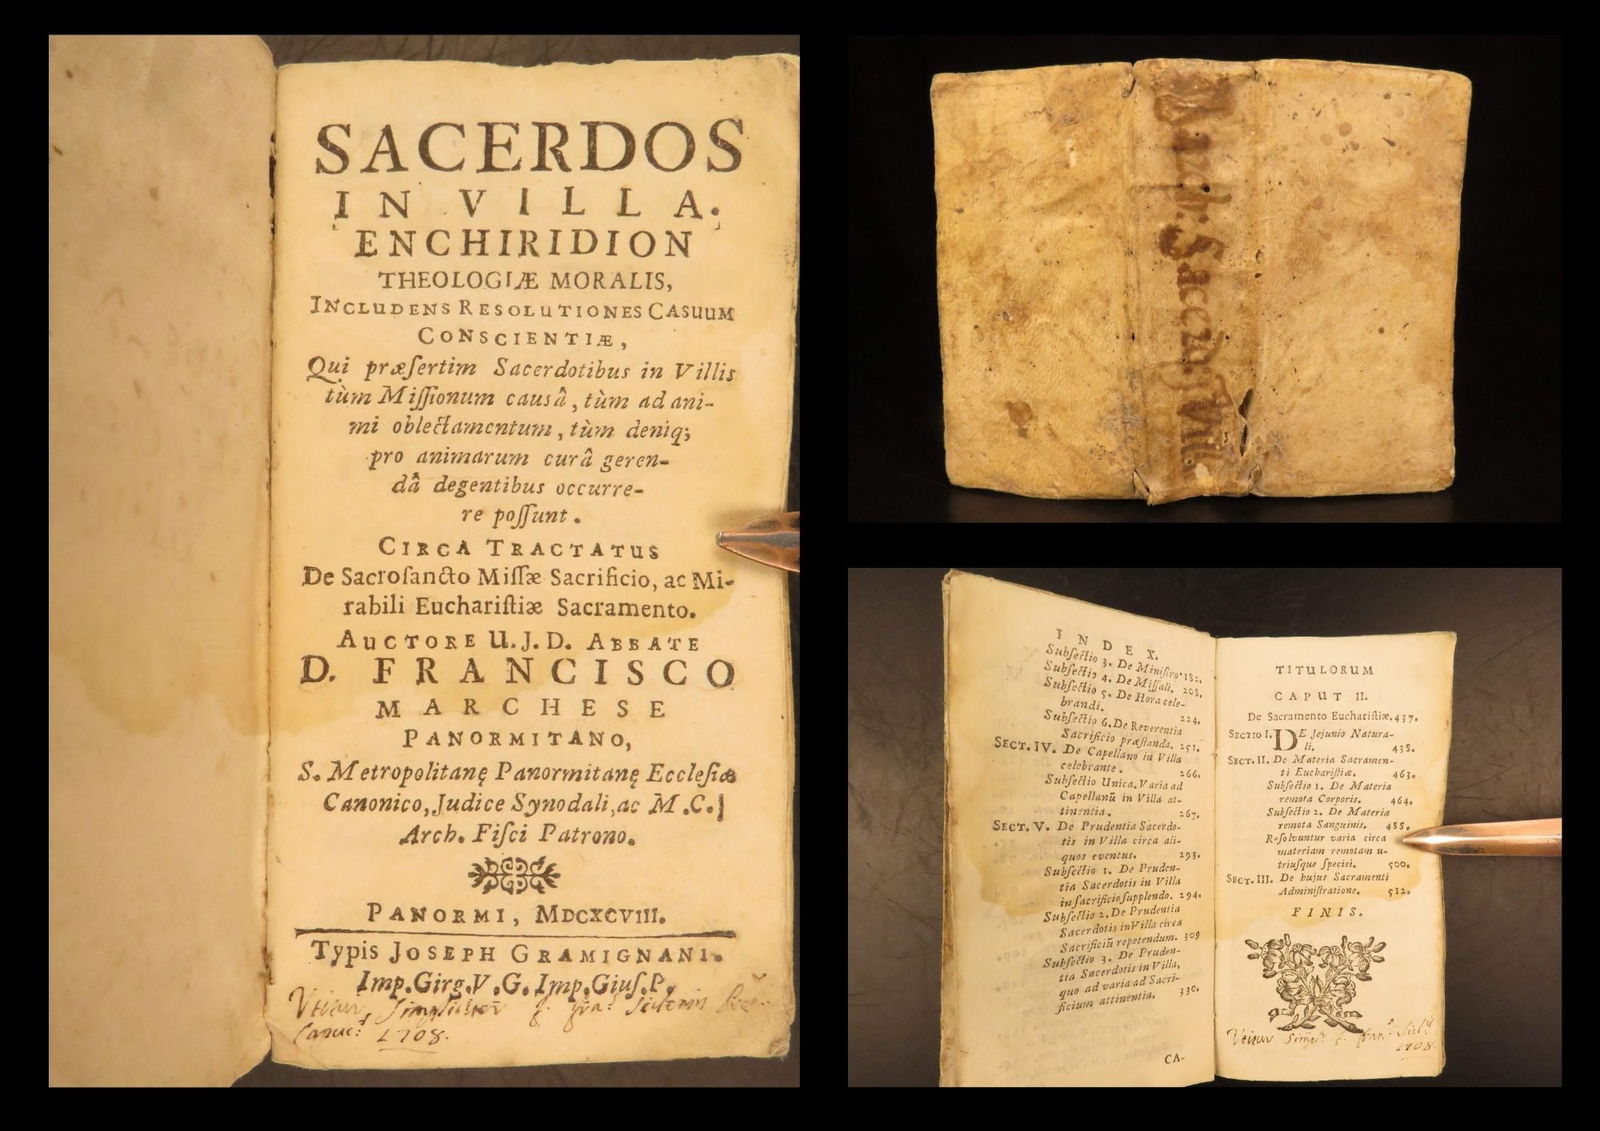 SACERDOS
IN VILLA.
ENCHIRIDION
THEOLOGIÆ MORALIS,
INCLUDENS RESOLUTIONES CASUUM
CONSCIENTIÆ,
Qui præſertim Sacerdotibus in Villis
tùm Miſſionum causâ, tùm ad ani-
mi oblectamentum, tùm deniq;
pro animarum curâ geren-
dâ degentibus occurre-
re poſſunt.
CIRCA TRACTATUS
De Sacroſancto Miſſæ Sacrificio, ac Mi-
rabili Euchariſtiæ Sacramento.
AUCTORE U.J.D. ABBATE
D. FRANCISCO
MARCHESE
PANORMITANO,
S. Metropolitanę Panormitanę Eccleſiæ
Canonico, Judice Synodali, ac M.C.
Arch. Fiſci Patrono.
PANORMI, MDCXCVIII.
Typis JOSEPH GRAMIGNANI.
Imp. Girg. V. G. Imp. Giuſ. P.
1708.
March: Sacerd: Vill.
INDEX.
Subſectio 3. De Miniſtro 182.
Subſectio 4. De Miſſali. 208.
Subſectio 5. De Hora cele-
brandi. 224.
Subſectio 6. De Reverentia
Sacrificio præſtanda. 251.
SECT. IV. De Capellano in Villa
celebrante. 266.
Subſectio Unica. Varia ad
Capellanū in Villa at-
tinentia. 267.
SECT. V. De Prudentia Sacerdo-
tis in Villa circa ali-
quos eventus. 293.
Subſectio 1. De Pruden-
tia Sacerdotis in Villa
in ſacrificio ſupplendo. 294.
Subſectio 2. De Prudentia
Sacerdotis in Villa circa
Sacrificiū repetendum. 309
Subſectio 3. De Pruden-
tia Sacerdotis in Villa,
quo ad varia ad Sacri-
ficium attinentia. 330.
CA-
TITULORUM
CAPUT II.
De Sacramento Euchariſtiæ. 437.
SECTIO I. DE Jejunio Natura-
li. 438.
SECT. II. De Materia Sacramen-
ti Euchariſtiæ. 463.
Subſectio 1. De Materia
remota Corporis. 464.
Subſectio 2. De Materia
remota Sanguinis. 488.
Reſolvuntur varia circa
materiam remotam u-
triuſque ſpeciei. 500.
SECT. III. De hujus Sacramenti
Adminiſtratione. 512.
FINIS.
1708